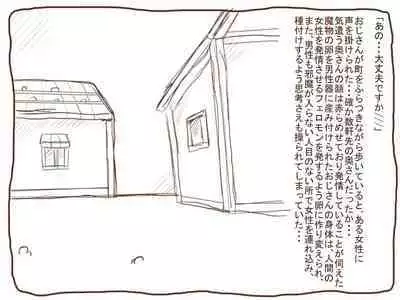 「あの・・・大丈夫ですか///」
おじさんが町をふらつきながら歩いていると、ある女性に
声を掛けられた・・確か数軒先の奥さんだったか・・・
気遣う奥さんの顔は赤らめせており発情していることが伺えた
魔物の卵を男性器に産み付けられたおじさんの身体は、人間の
女性を発情させるフェロモンを発するよう卵に作り変えられ、
また、男性も邪魔が入らない人目のない所で女性を連れ込み、
種付けするよう思考さえも操られてしまっていた・・・